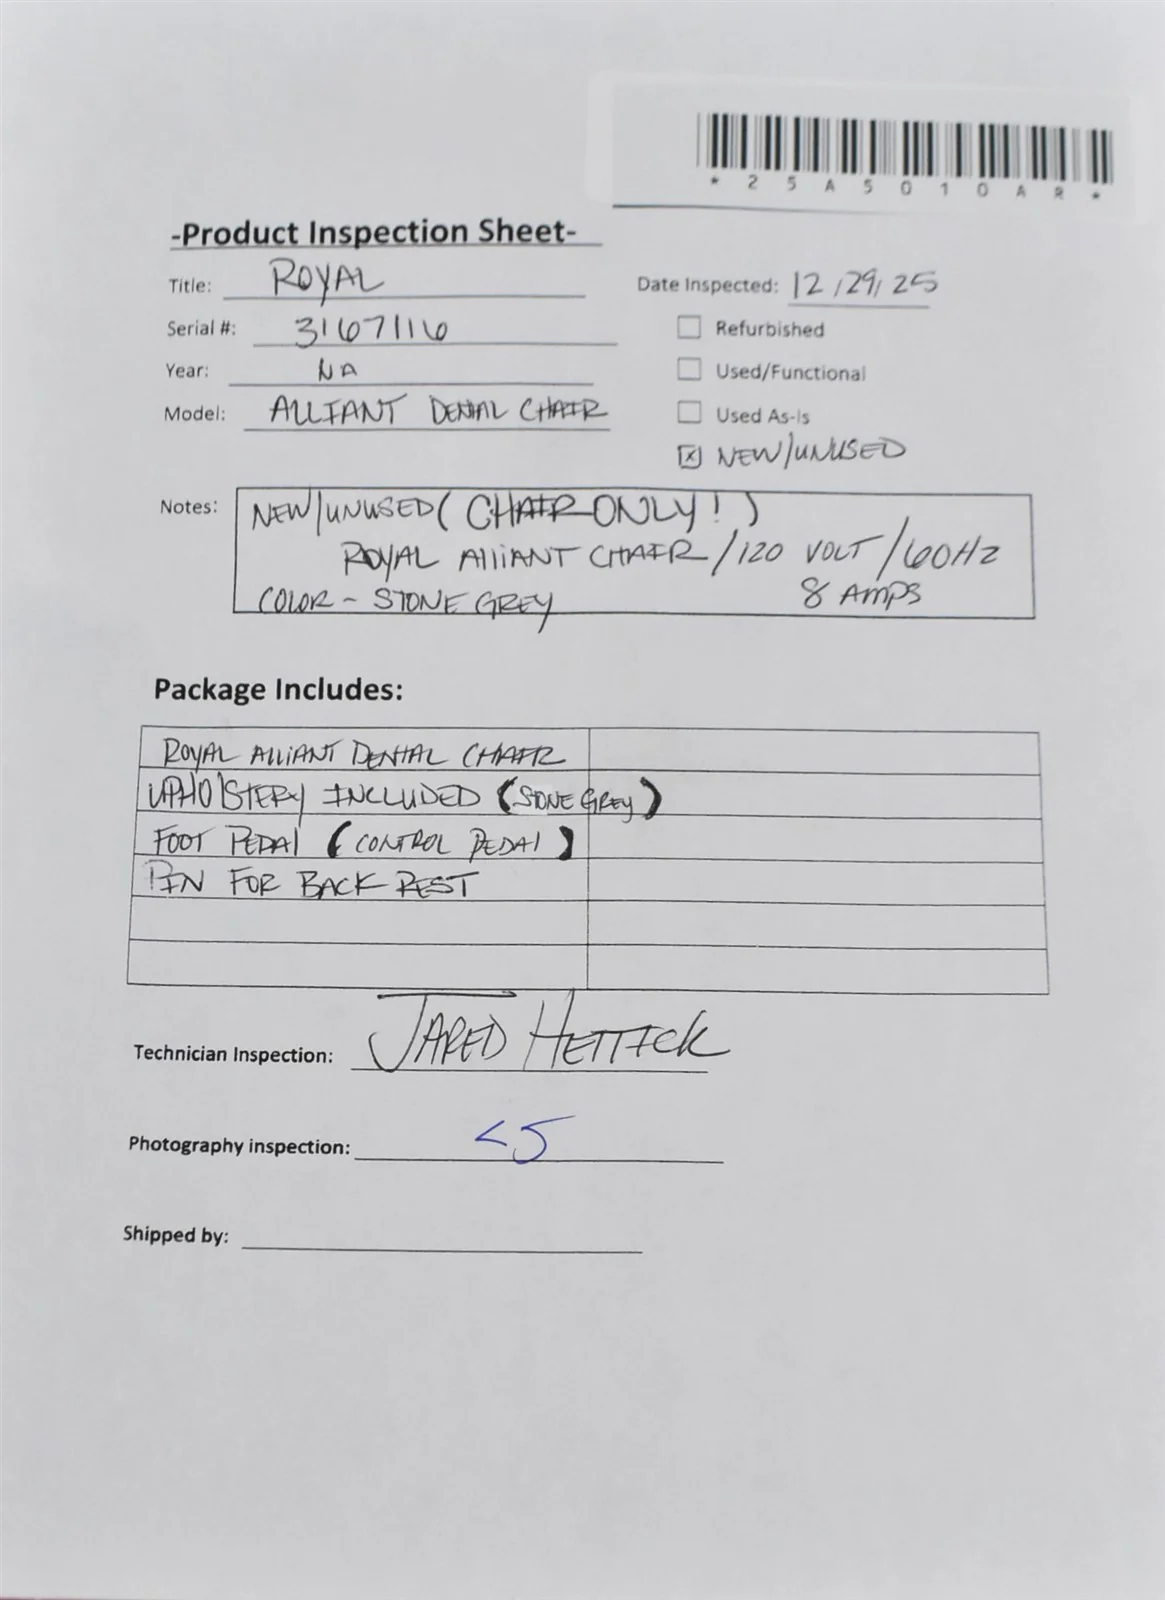 *25A5010AR*
-Product Inspection Sheet-
Title: ROYAL
Date Inspected: 12/29/25
Serial #: 3167116
Refurbished
Year: NA
Used/Functional
Model: ALLIANT DENTAL CHAIR
Used As-Is
NEW/UNUSED
Notes: NEW/UNUSED (CHAIR ONLY!)
ROYAL AlliANT CHAIR/120 VOLT/60HZ
COLOR - STONE GREY 8 AMPS
Package Includes:
ROYAL ALLiANT DENTAL CHAIR
UPHOlSTERY INCLUDED (STONE GREY)
FOOT PEDAl (CONTROL PEDAl)
PIN FOR BACK REST
Technician Inspection: JARED HETTICK
Photography inspection:
Shipped by: